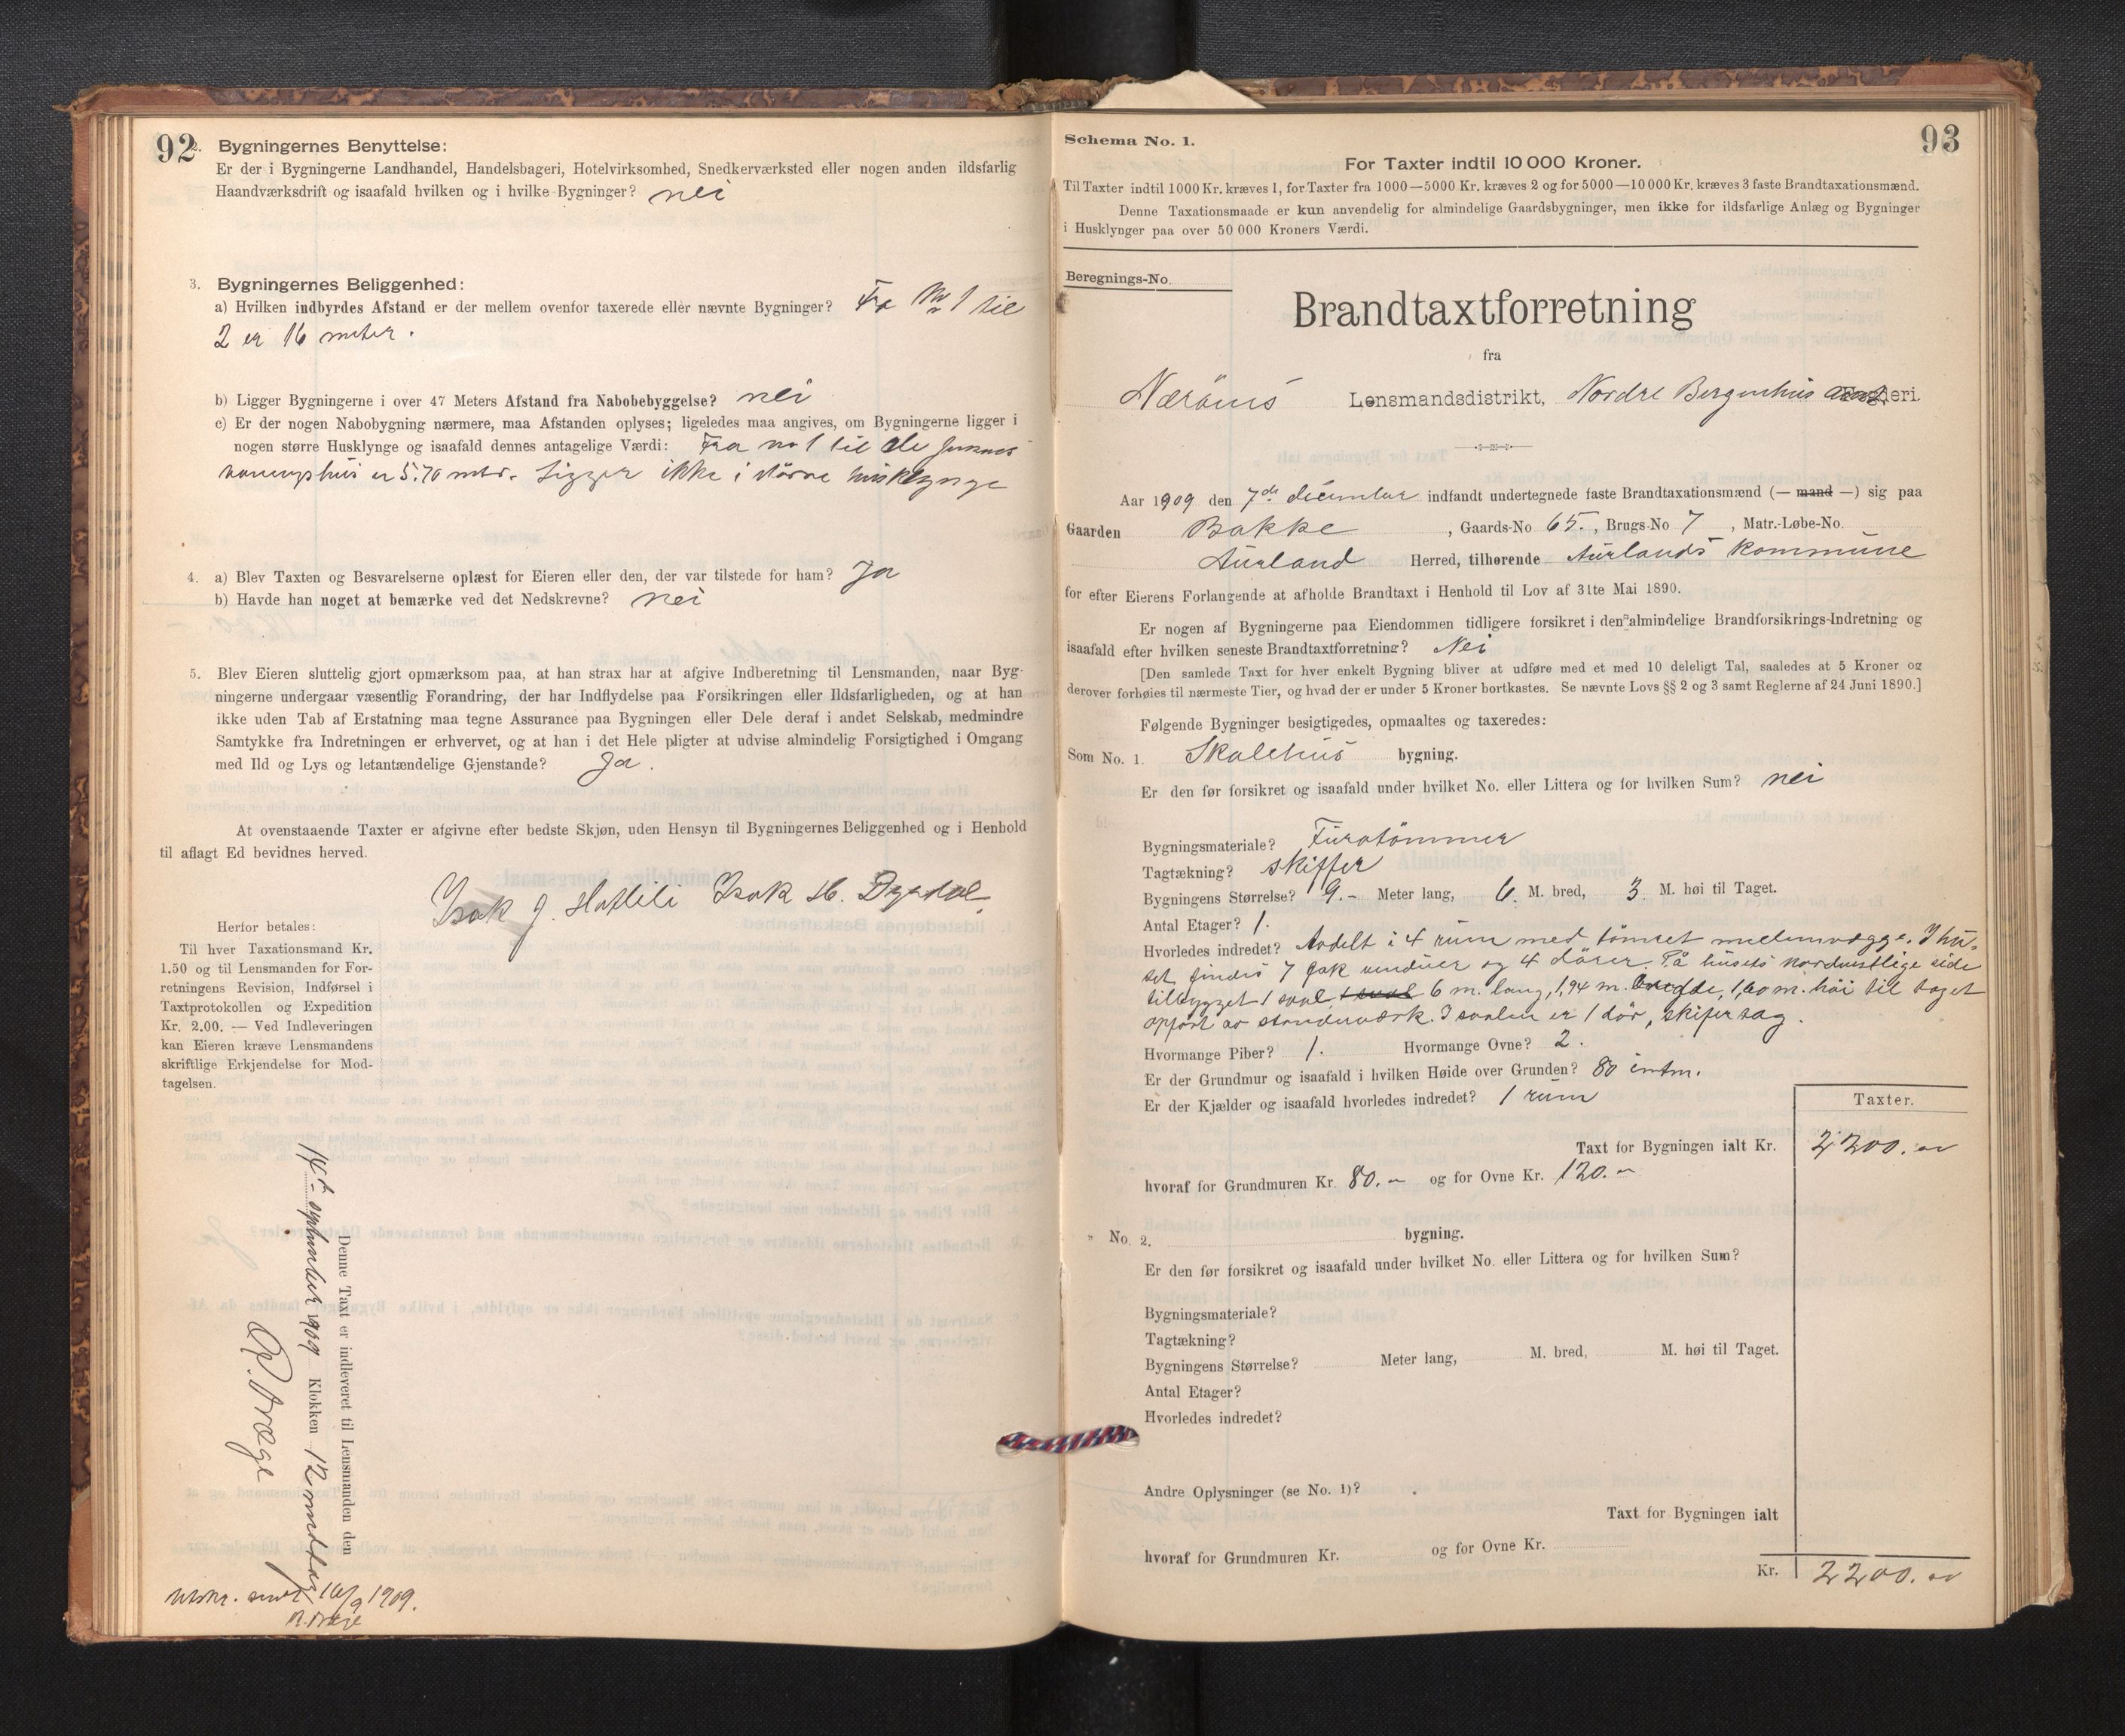 92
2. Bygningernes Benyttelse:
Er der i Bygningerne Landhandel, Handelsbageri, Hotelvirksomhed, Snedkerværksted eller nogen anden ildsfarlig
Haandværksdrift og isaafald hvilken og i hvilke Bygninger? nei
3. Bygningernes Beliggenhed:
a) Hvilken indbyrdes Afstand er der mellem ovenfor taxerede eller nævnte Bygninger? Fra No 1 til
2 er 16 meter.
b) Ligger Bygningerne i over 47 Meters Afstand fra Nabobebyggelse? nei
c) Er der nogen Nabobygning nærmere, maa Afstanden oplyses; ligeledes maa angives, om Bygningerne ligger i
nogen større Husklynge og isaafald dennes antagelige Værdi: Fra no 1 til
er 5.70 mtr. Ligger ikke i større husklynge
4. a) Blev Taxten og Besvarelserne oplæst for Eieren eller den, der var tilstede for ham? Ja
b) Havde han noget at bemærke ved det Nedskrevne? nei
5. Blev Eieren sluttelig gjort opmærksom paa, at han strax har at afgive Indberetning til Lensmanden, naar Byg-
ningerne undergaar væsentlig Forandring, der har Indflydelse paa Forsikringen eller Ildsfarligheden, og at han
ikke uden Tab af Erstatning maa tegne Assurance paa Bygningen eller Dele deraf i andet Selskab, medmindre
Samtykke fra Indretningen er erhvervet, og at han i det Hele pligter at udvise almindelig Forsigtighed i Omgang
med Ild og Lys og letantændelige Gjenstande? Ja.
At ovenstaaende Taxter er afgivne efter bedste Skjøn, uden Hensyn til Bygningernes Beliggenhed og i Henhold
til aflagt Ed bevidnes herved.
Isak J. Hatlili Isak H. Dyrdal.
Herfor betales:
Til hver Taxationsmand Kr.
1.50 og til Lensmanden for For-
retningens Revision, Indførsel i
Taxtprotokollen og Expedition
Kr. 2.00. — Ved Indleveringen
kan Eieren kræve Lensmandens
skriftlige Erkjendelse for Mod-
tagelsen.
Denne Taxt er indleveret til Lensmanden den
14de september 1909 Klokken 12 middag
Utskr. sendt 16/9 1909.
93
Schema No. 1.
For Taxter indtil 10 000 Kroner.
Til Taxter indtil 1000 Kr. kræves 1, for Taxter fra 1000—5000 Kr. kræves 2 og for 5000—10 000 Kr. kræves 3 faste Brandtaxationsmænd.
Denne Taxationsmaade er kun anvendelig for almindelige Gaardsbygninger, men ikke for ildsfarlige Anlæg og Bygninger
i Husklynger paa over 50 000 Kroners Værdi.
Beregnings-No.
Brandtaxtforretning
fra
Nærøens Lensmandsdistrikt, Nordre Bergenhus deri.
Aar 1909 den 7de december indfandt undertegnede faste Brandtaxationsmænd (— mand —) sig paa
Gaarden Bakke, Gaards-No 65., Brugs-No 7, Matr.-Løbe-No.
Aurland Herred, tilhørende Aurlands kommune
for efter Eierens Forlangende at afholde Brandtaxt i Henhold til Lov af 31te Mai 1890.
Er nogen af Bygningerne paa Eiendommen tidligere forsikret i den almindelige Brandforsikrings-Indretning og
isaafald efter hvilken seneste Brandtaxtforretning? Nei
[Den samlede Taxt for hver enkelt Bygning bliver at udføre med et med 10 deleligt Tal, saaledes at 5 Kroner og
derover forhøies til nærmeste Tier, og hvad der er under 5 Kroner bortkastes. Se nævnte Lovs §§ 2 og 3 samt Reglerne af 24 Juni 1890.]
Følgende Bygninger besigtigedes, opmaaltes og taxeredes:
Som No. 1. Skolehus bygning.
Er den før forsikret og isaafald under hvilket No. eller Littera og for hvilken Sum? nei
Bygningsmateriale? Furutømmer
Tagtækning? skiffer
Bygningens Størrelse? 9.- Meter lang, 6. M. bred, 3. M. høi til Taget.
Antal Etager? 1.
Hvorledes indredet? Avdelt i 4 rum med tømret mellemvægge. I hu-
set findes 7 fak vinduer og 4 dører. På husets nordvestlige side
tilbygget 1 sval, 6 m. lang, 1,94 m. bredde, 1,60 m. høi til taget
opført av stenderværk. I svalen er 1 dør, skifertag.
Hvormange Piber? 1. Hvormange Ovne? 2.
Er der Grundmur og isaafald i hvilken Høide over Grunden? 80 centm.
Er der Kjælder og isaafald hvorledes indredet? 1 rum
Taxter.
Taxt for Bygningen ialt Kr. 2200.
hvoraf for Grundmuren Kr. 80.- og for Ovne Kr. 120.-
" No. 2. bygning.
Er den før forsikret og isaafald under hvilket No. eller Littera og for hvilken Sum?
Bygningsmateriale?
Tagtækning?
Bygningens Størrelse? Meter lang, M. bred, M. høi til Taget.
Antal Etager?
Hvorledes indredet?
Andre Oplysninger (se No. 1)?
Taxt for Bygningen ialt
hvoraf for Grundmuren Kr. og for Ovne Kr.
Kr. 2200.